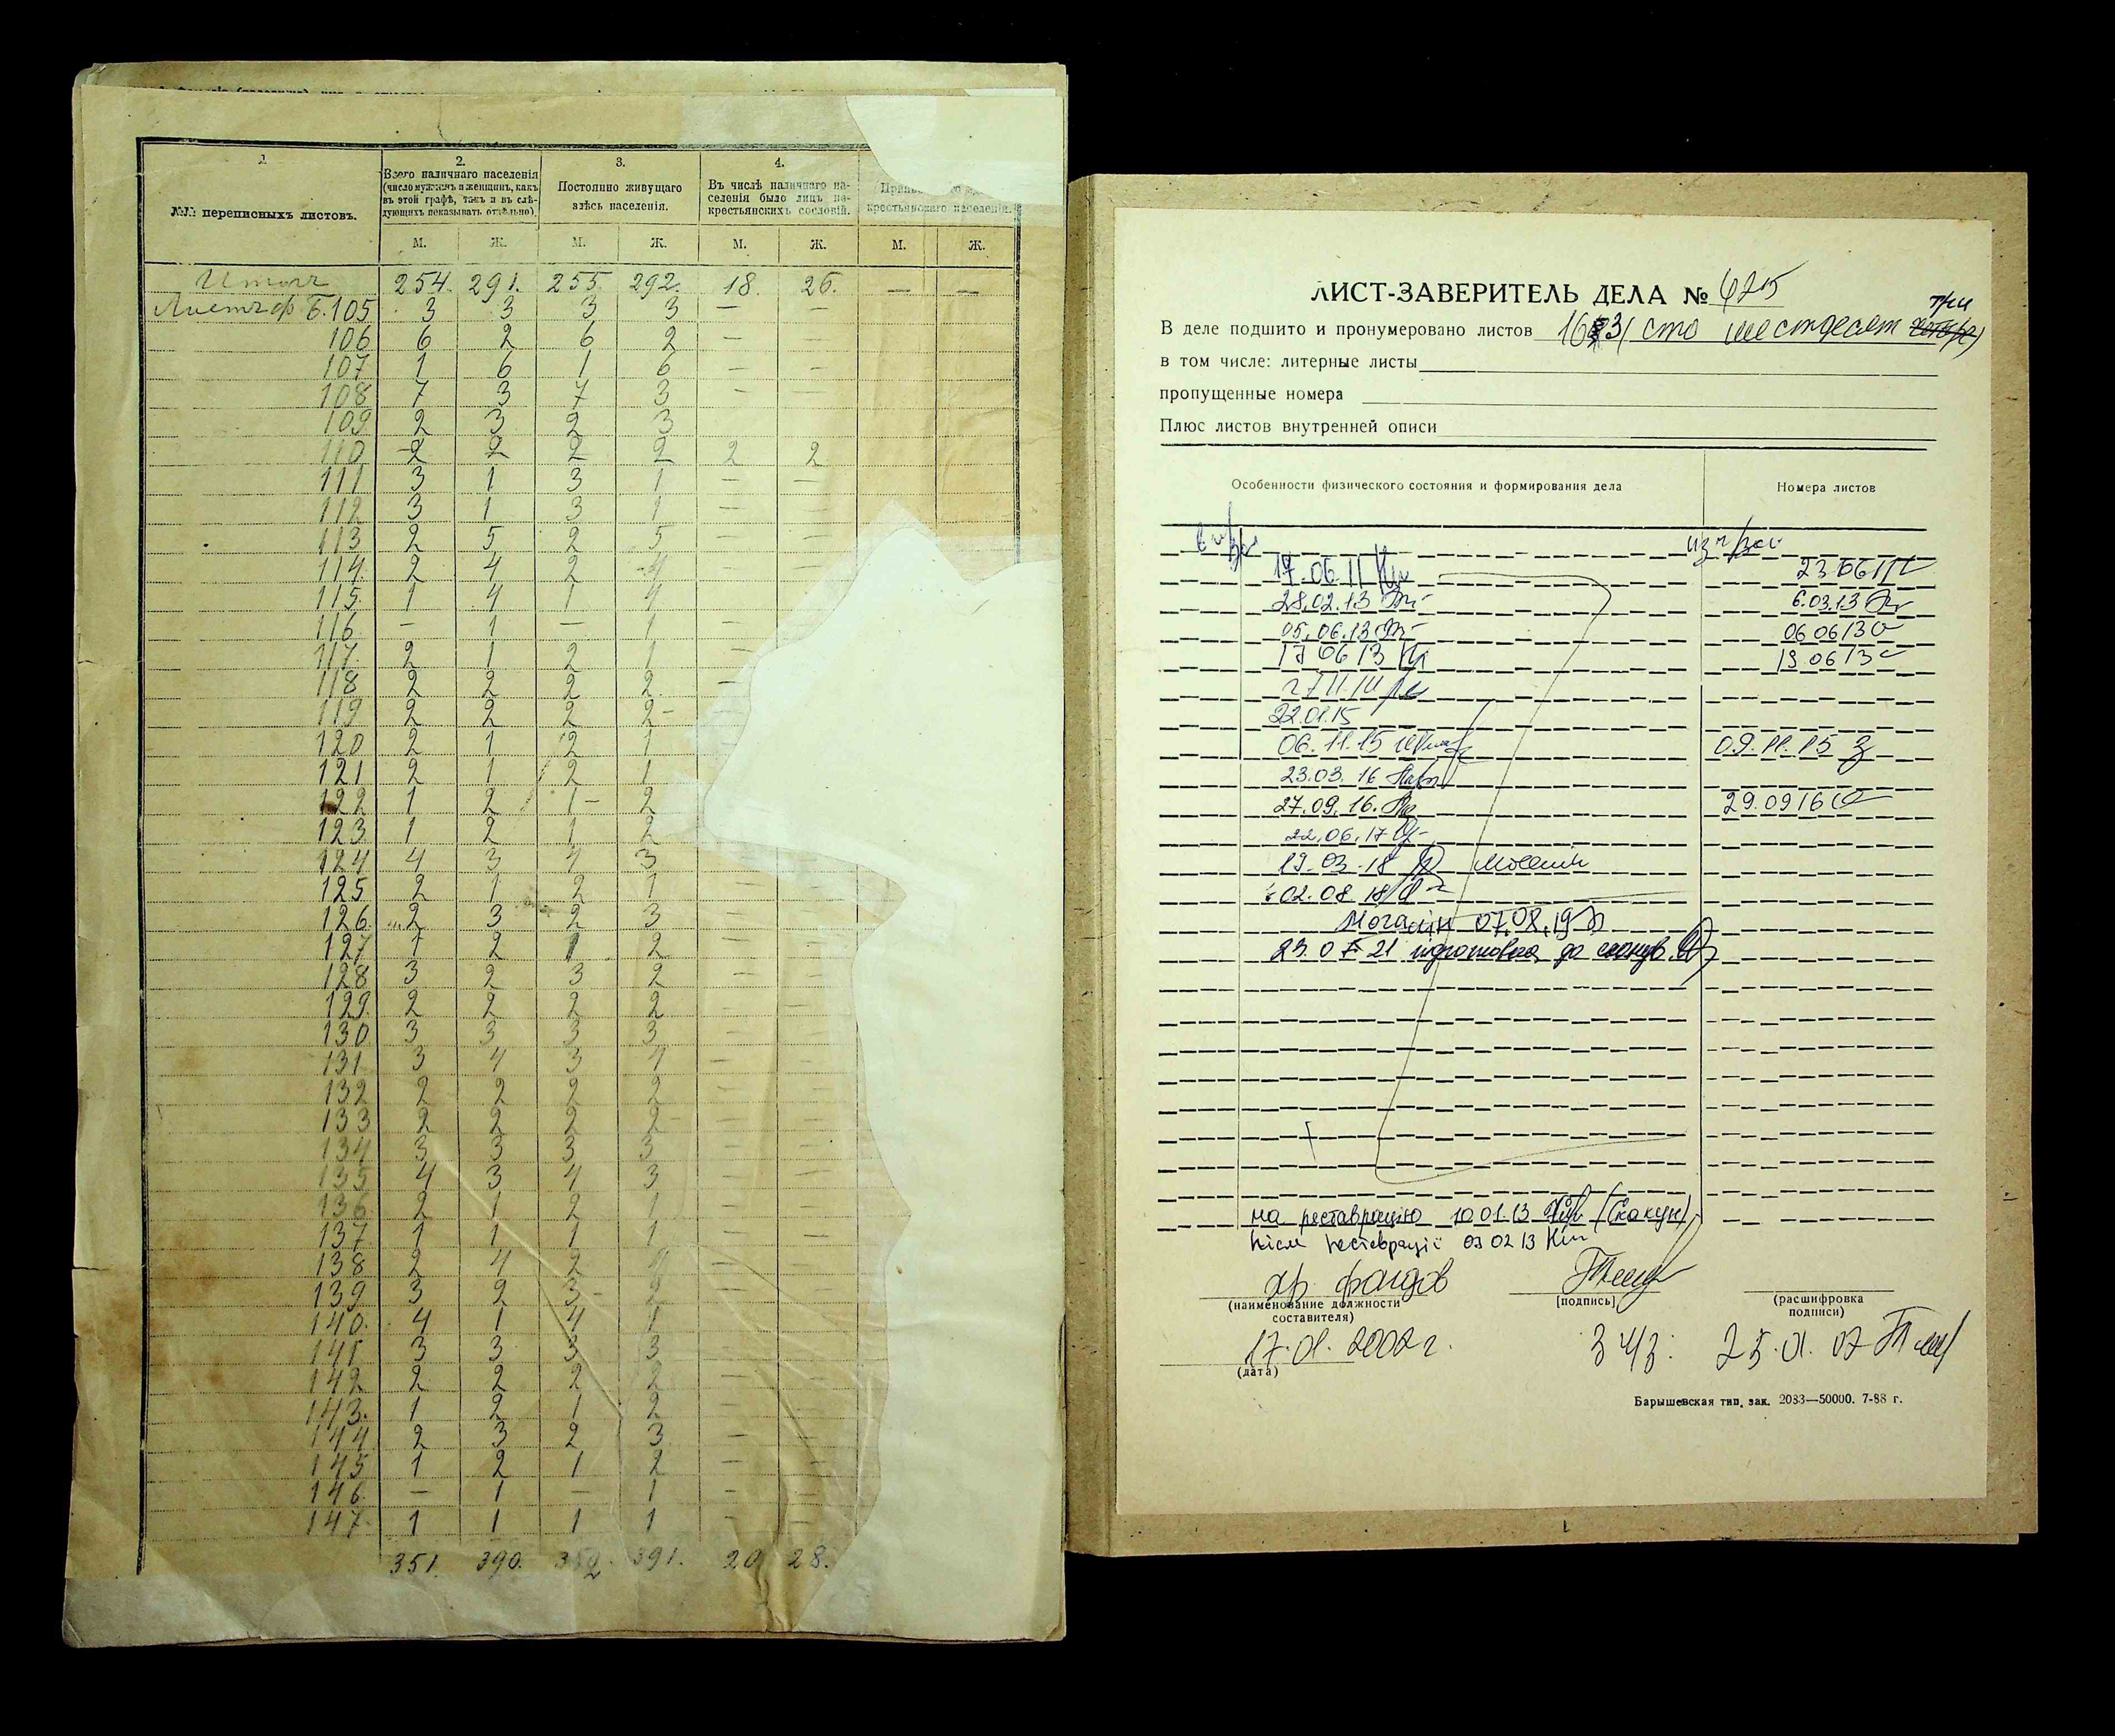 1.
№№ переписныхъ листовъ.
2.
Всего наличнаго населенія
(число мужчинъ и женщинъ, какъ
въ этой графѣ, такъ и въ слѣ-
дующихъ показывать отдѣльно)
3.
Постоянно живущаго
здѣсь населенія.
4.
Въ числѣ наличнаго на-
селенія было лицъ не-
крестьянскихъ сословій.
крестьянскаго населенія.
М. Ж. М. Ж. М. Ж. М. Ж.
Итого 254. 291. 255. 292. 18. 26. — —
Листъ ф Б. 105 3 3 3 3 — —
106 6 2 6 2 — —
107 1 6 1 6 — —
108 7 3 7 3 — —
109 2 3 2 3
110 2 2 2 2 2 2
111 3 1 3 1 — —
112 3 1 3 1 — —
113 2 5 2 5 — —
114 2 4 2 4 — —
115 1 4 1 4 —
116 — 1 — 1 —
117 2 1 2 1 —
118 2 2 2 2 —
119 2 2 2 2
120 2 1 2 1
121 2 1 2 1
122 1 2 1 2
123 1 2 1 2
124 4 3 4 3 — —
125 2 1 2 1 — —
126 2 3 2 3 — —
127 1 2 1 2 — —
128 3 2 3 2 — —
129 2 2 2 2 — —
130 3 3 3 3 — —
131 3 4 3 4 — —
132 2 2 2 2 — —
133 2 2 2 2 — —
134 3 3 3 3 — —
135 4 3 4 3 — —
136 2 1 2 1 — —
137 1 1 1 1 — —
138 2 4 2 4 — —
139 3 2 3 2 — —
140 4 1 4 1 — —
141 3 3 3 3 — —
142 2 2 2 2 — —
143 1 2 1 2 — —
144 2 3 2 3 — —
145 1 2 1 2 — —
146 — 1 — 1 — —
147 1 1 1 1 — —
351. 390. 352. 391. 20 28.
ЛИСТ-ЗАВЕРИТЕЛЬ ДЕЛА №
три
В деле подшито и пронумеровано листов 163 (сто шестдесят
в том числе: литерные листы
пропущенные номера
Плюс листов внутренней описи
Особенности физического состояния и формирования дела
Номера листов
17.06.11 23.06.11
28.02.13 6.03.13
05.06.13 06 06 13
17 06 13 19 06 13
22.01.15
06.11.15 09.11.15
23.03.16
27.09.16. 29.09 16
22.06.17
19.03.18
02.08.18
07.08.19
на реставрацію 10 01 13 (Скакун)
після реставрації 03 02 13
хр. фондов
(наименование должности
составителя)
(подпись)
(расшифровка
подписи)
17.01.2002 г.
(дата)
25.01.07
Барышевская тип. зак. 2083—50000. 7-88 г.